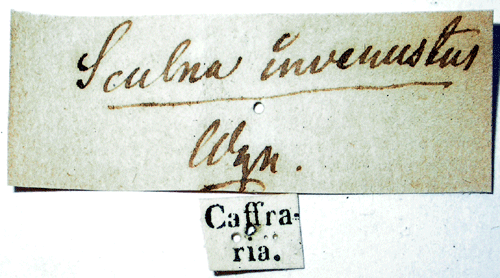 Sculna invenustus
Wgn.
Caffra-
ria.